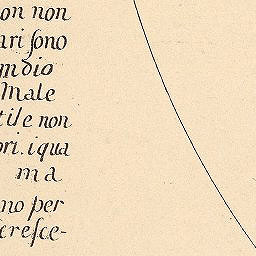 on non
ari ſono
mdio
Male
tile non
ori. i qua
ma
no per
creſce-